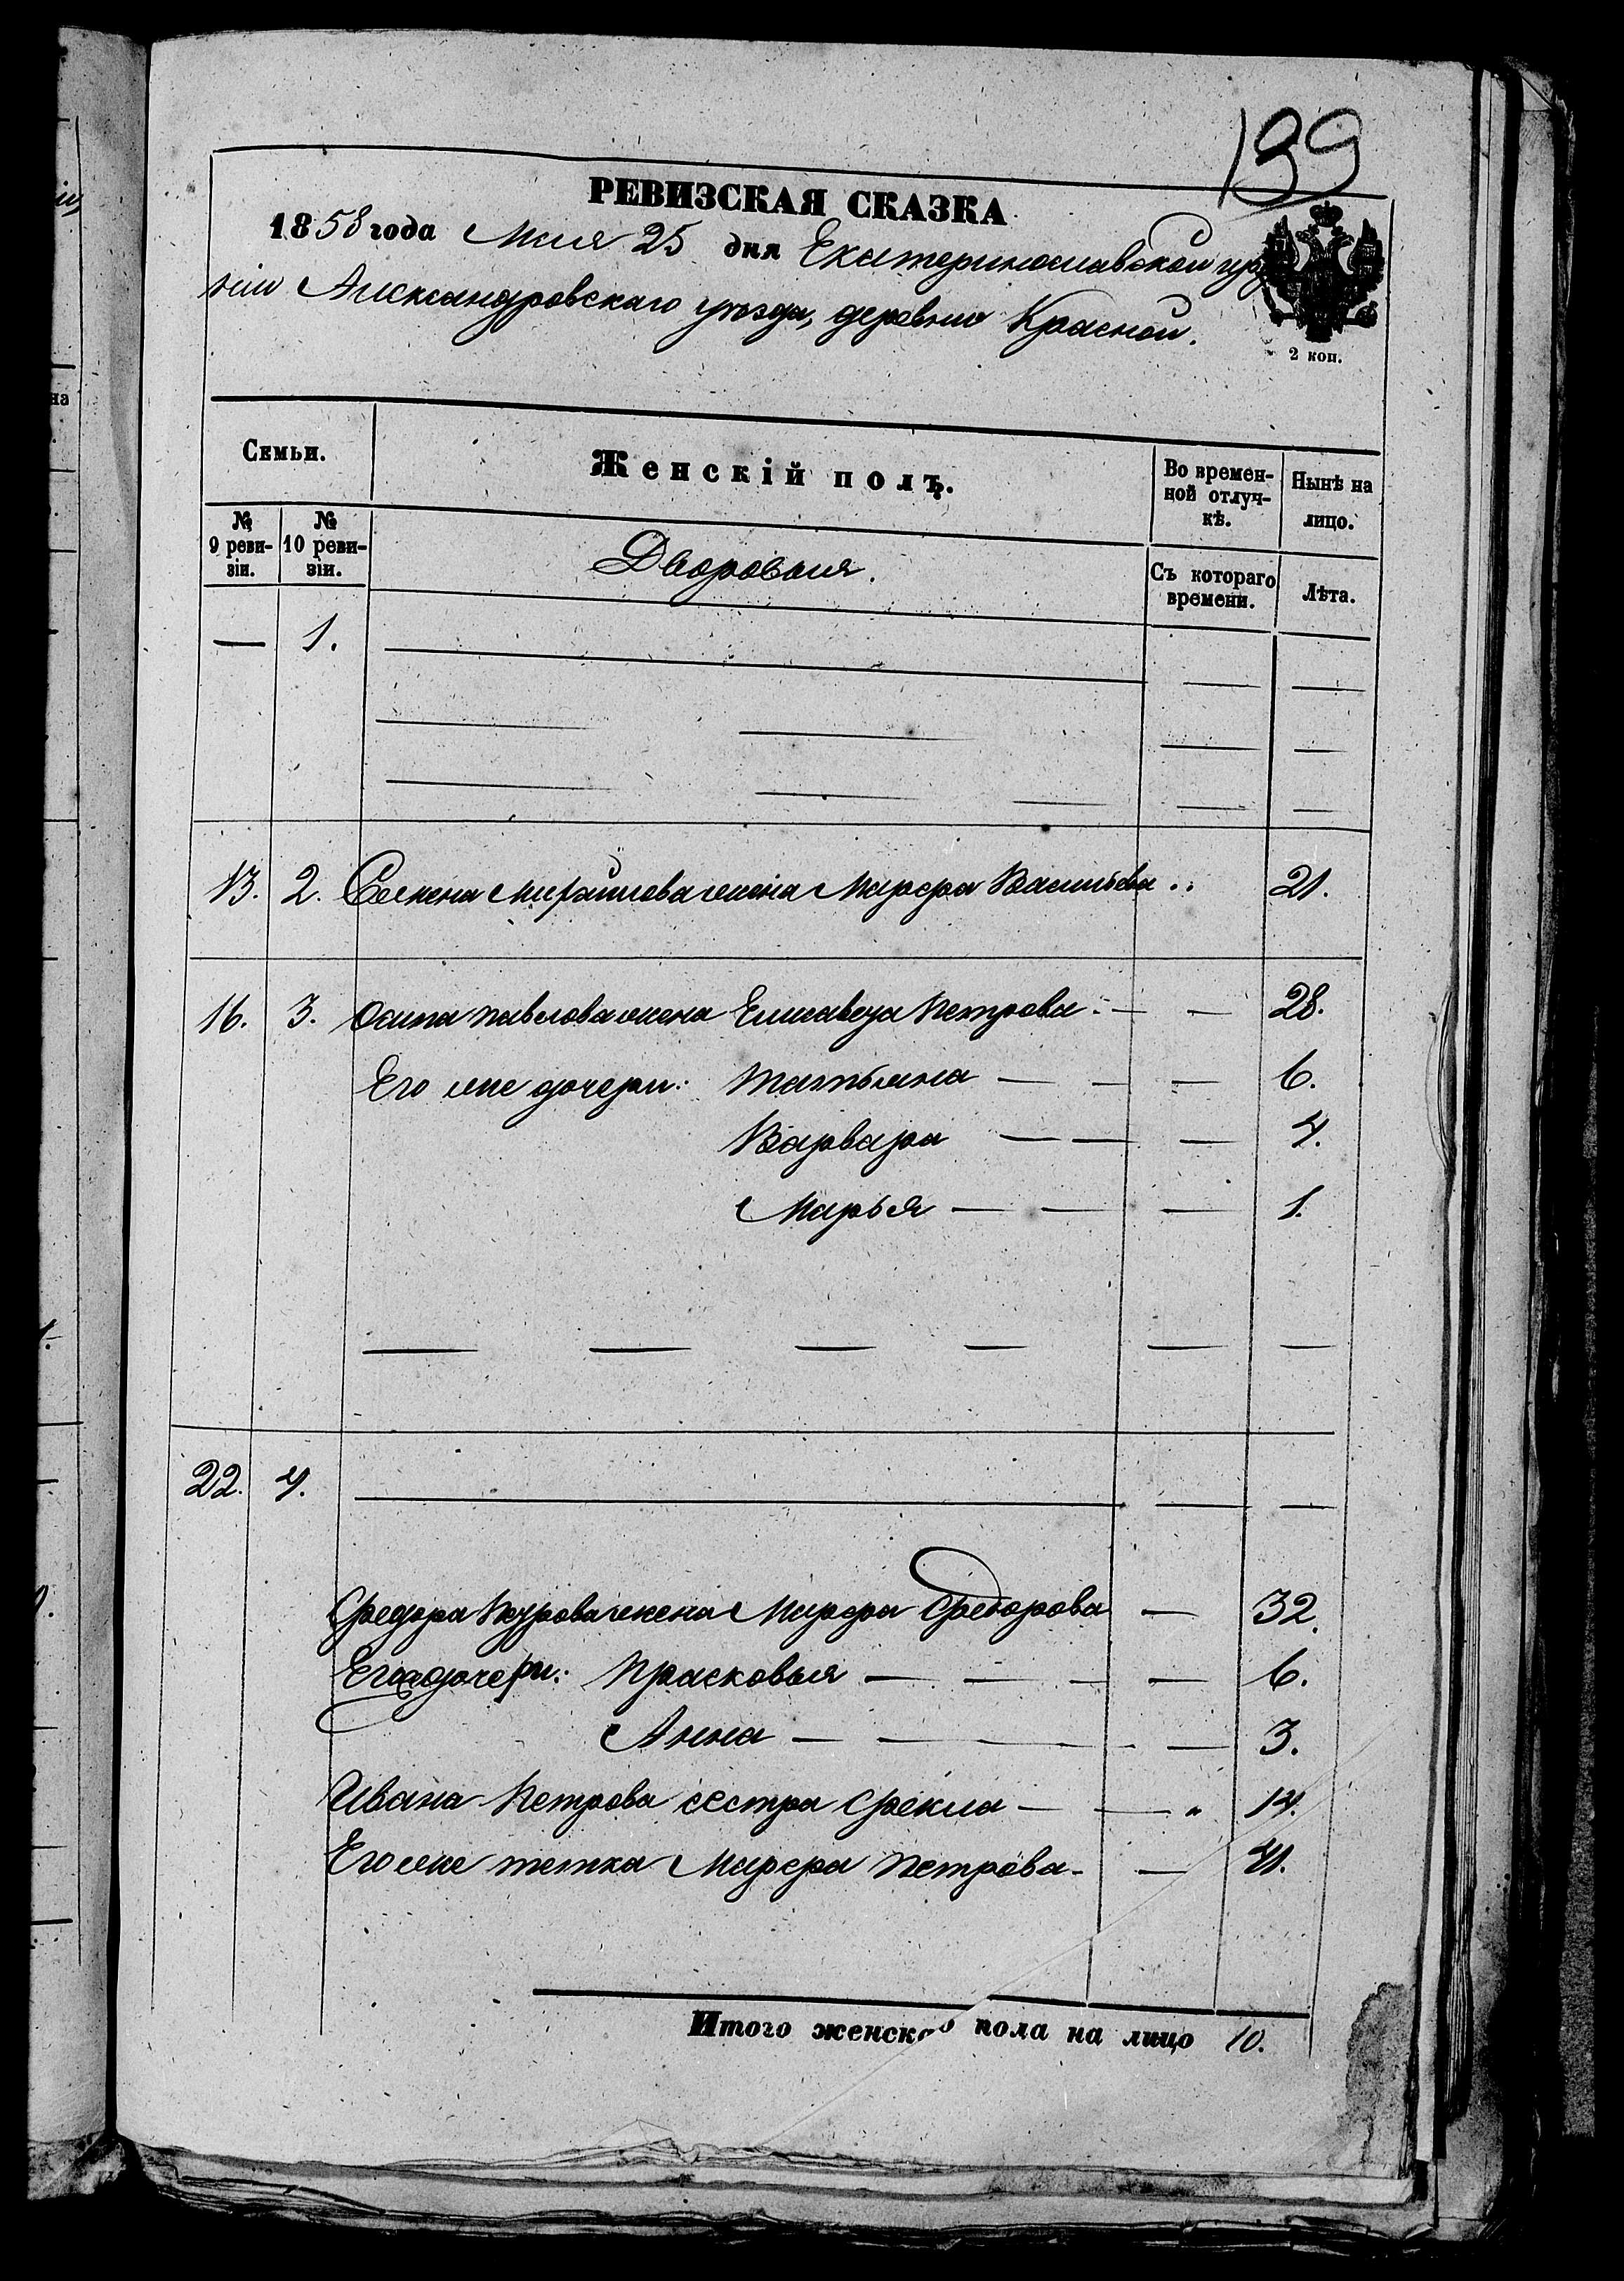 199
РЕВИЗСКАЯ СКАЗКА
1858 года Мая 25 дня Екатеринославской губер
ніи Александровскаго уѣзда, деревни Красной.
2 коп.
Семьи.
Женскій полъ.
Во времен-
ной отлуч-
кѣ.
Нынѣ на
лицо.
№
9 реви-
зіи.
№
10 реви-
зіи.
Дворовыя.
Съ котораго
времени.
Лѣта.
— 1.
13. 2. Семена Михайлова жена Марфа Васильева 21.
16. 3. Осипа Павлова жена Елисавета Петрова 28.
Его же дочери: Татьяна 6.
Варвара 4.
Марья 1.
22. 4.
Федора Петрова жена Марфа Федорова 32.
Его дочери: Прасковья 6.
Анна 3.
Ивана Петрова сестра Фекла 14.
Его же тетка Марфа Петрова 41.
Итого женскаго пола на лицо 10.